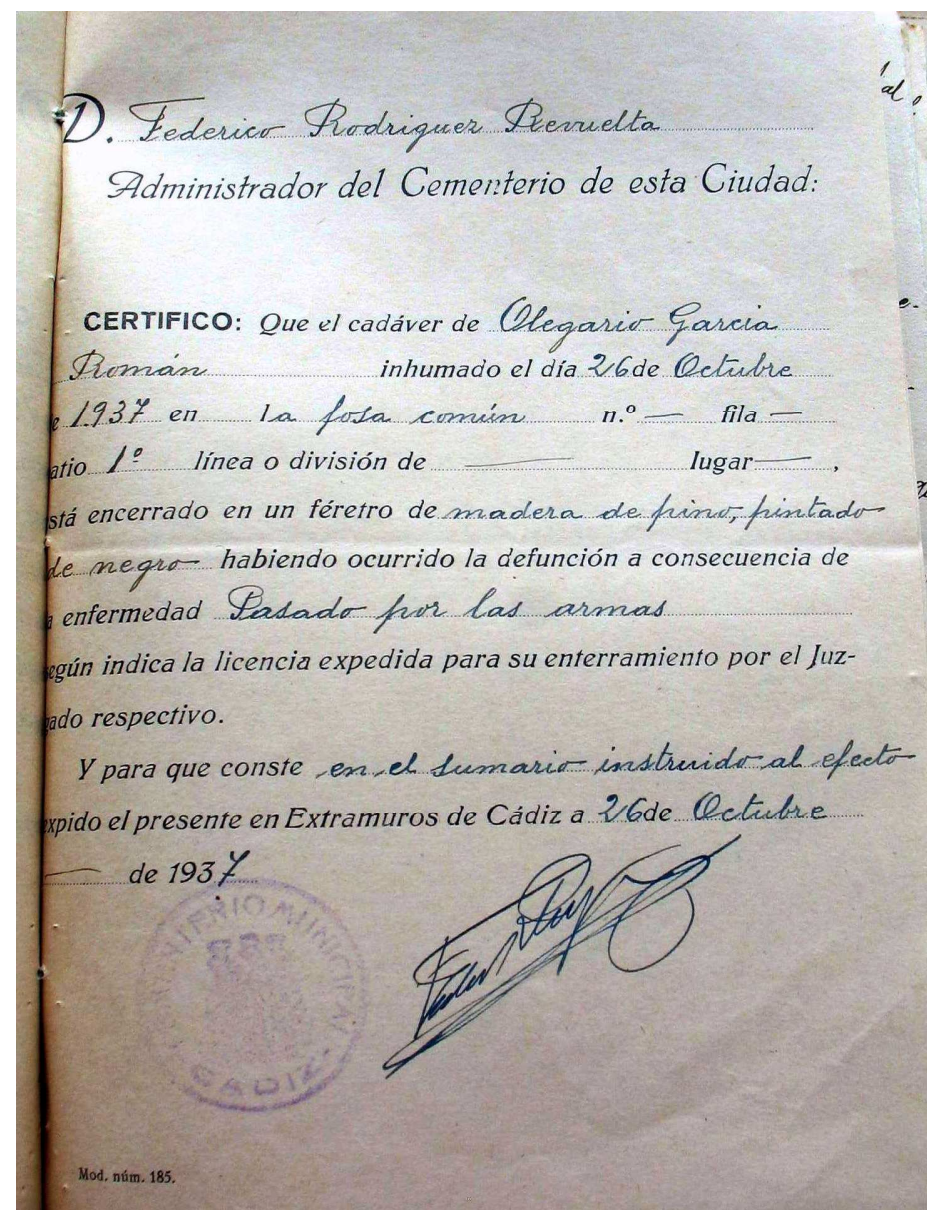 D. Federico Rodriguez Revuelta
Administrador del Cementerio de esta Ciudad:
CERTIFICO: Que el cadáver de Olegario Garcia
Román inhumado el día 26 de Octubre
e 1937 en la fosa común n.º — fila —
atio 1º línea o división de — lugar — ,
stá encerrado en un féretro de madera de pino, pintado
de negro habiendo ocurrido la defunción a consecuencia de
a enfermedad Pasado por las armas
egún indica la licencia expedida para su enterramiento por el Juz-
gado respectivo.
Y para que conste en el sumario instruido al efecto
xpido el presente en Extramuros de Cádiz a 26 de Octubre
— de 1937
CEMENTERIO MUNICIPAL
CADIZ
Mod. núm. 185.